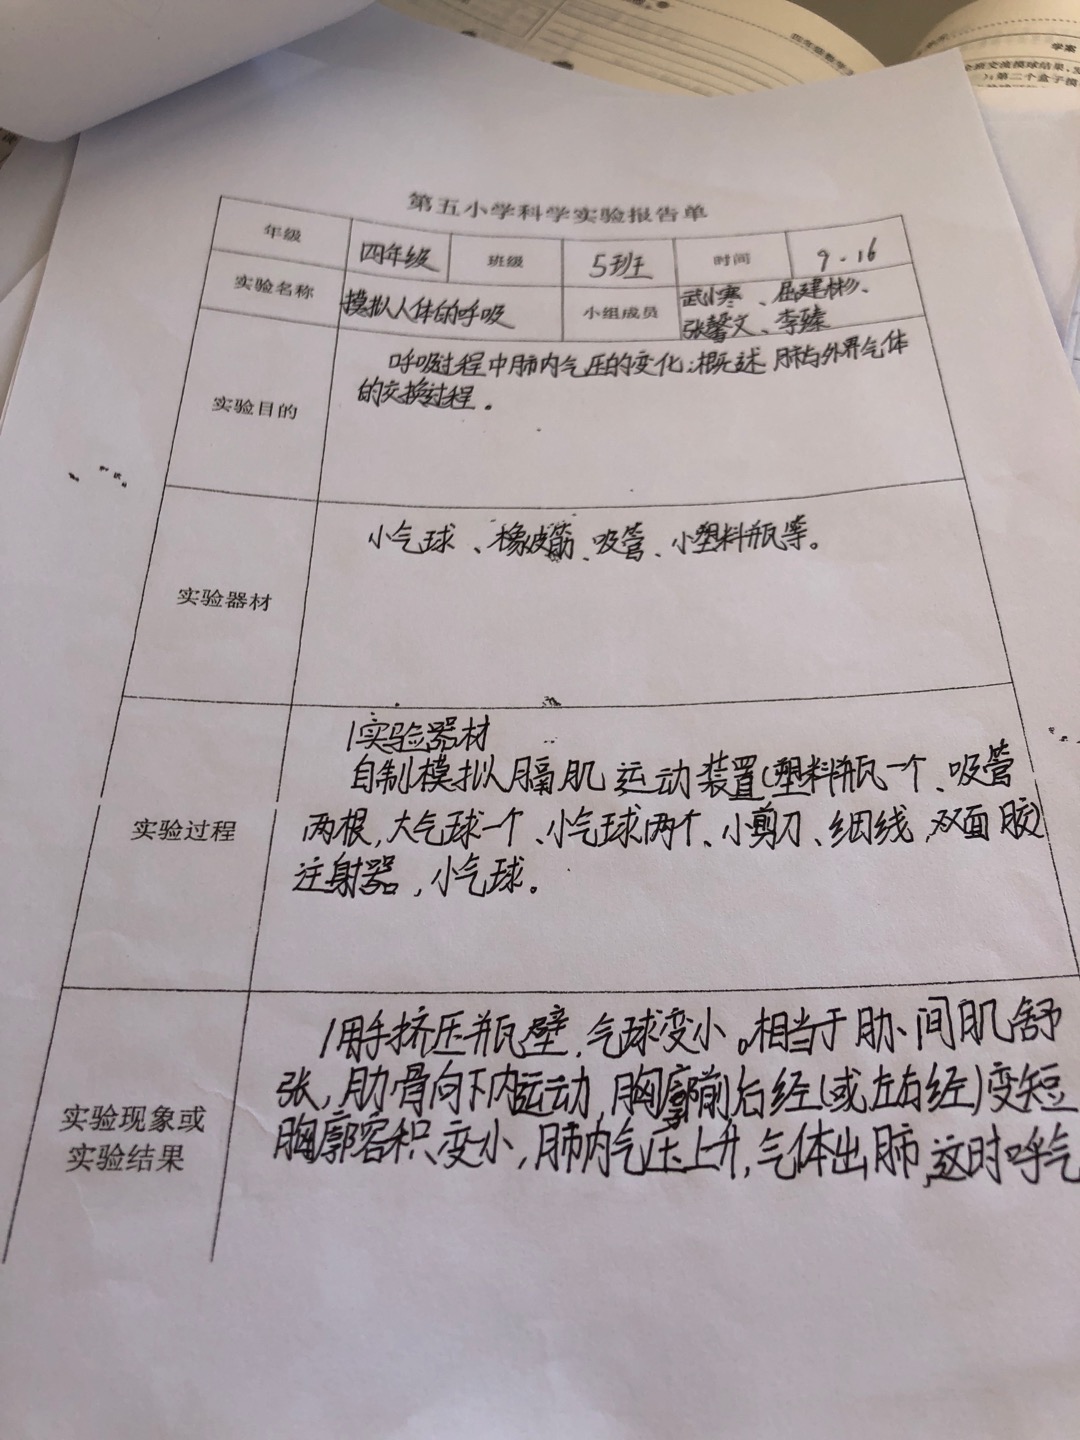 四年级数学
学案
全班交流摸球结果,发
第二个盒子摸
第五小学科学实验报告单
年级 四年级 班级 5班 时间 9.16
实验名称 模拟人体的呼吸 小组成员 武小寒、屈建彬、
张馨文、李臻
呼吸过程中肺内气压的变化;概述肺与外界气体
的交换过程。
实验目的
小气球、橡皮筋、吸管、小塑料瓶等。
实验器材
1实验器材
自制模拟人膈肌运动装置(塑料瓶一个、吸管
两根,大气球一个、小气球两个、小剪刀、细线,双面胶)
注射器,小气球。
实验过程
1用手挤压瓶壁,气球变小。相当于肋间肌舒
张,肋骨向下内运动,胸廓前后经(或左右经)变短
胸廓容积变小,肺内气压上升,气体出肺,这时呼气
实验现象或
实验结果